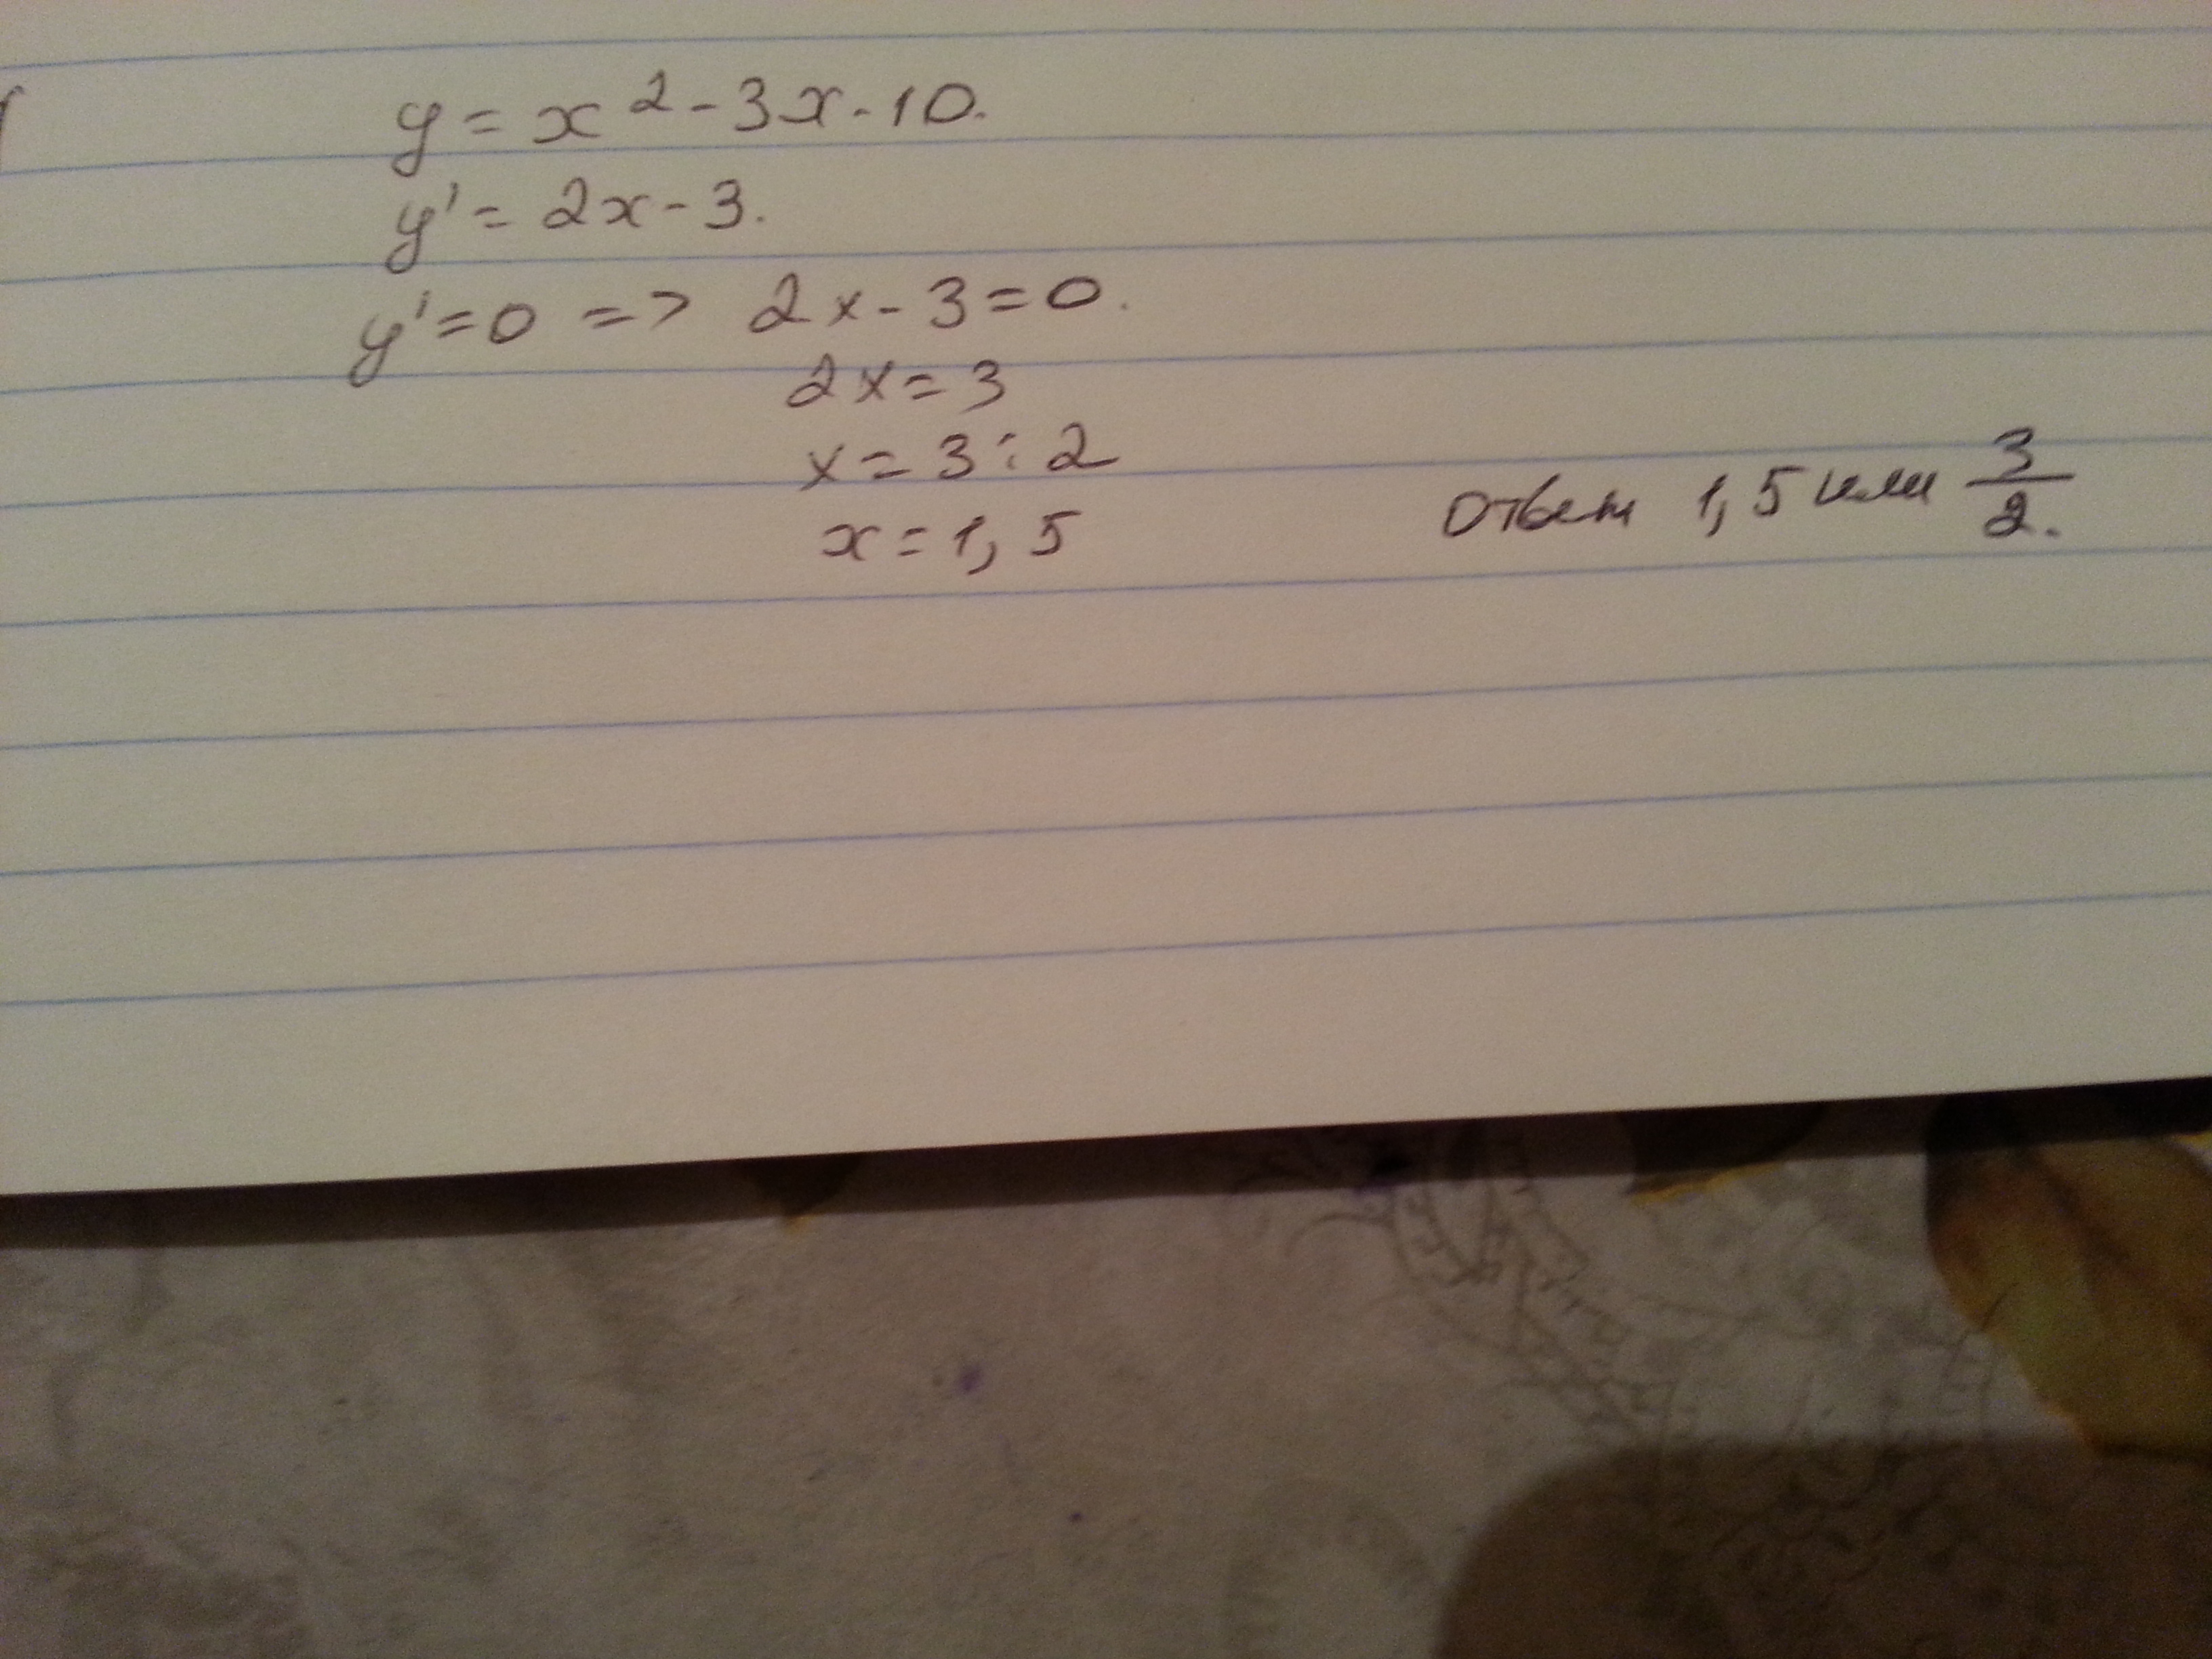 y = x² - 3x - 10.
y' = 2x - 3.
y' = 0 => 2x - 3 = 0.
2x = 3
x = 3 : 2
x = 1,5
Ответ 1,5 или 3/2.